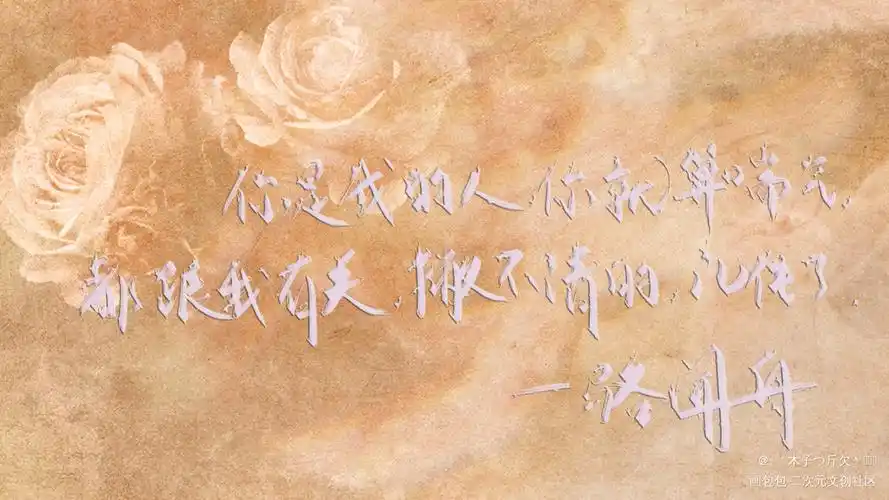 你是我的人,你就算喘气,
都跟我有关,撇不清的,记住了.
一路闻舟
@:丶木子つ斤欠丶
画包包-二次元文创社区